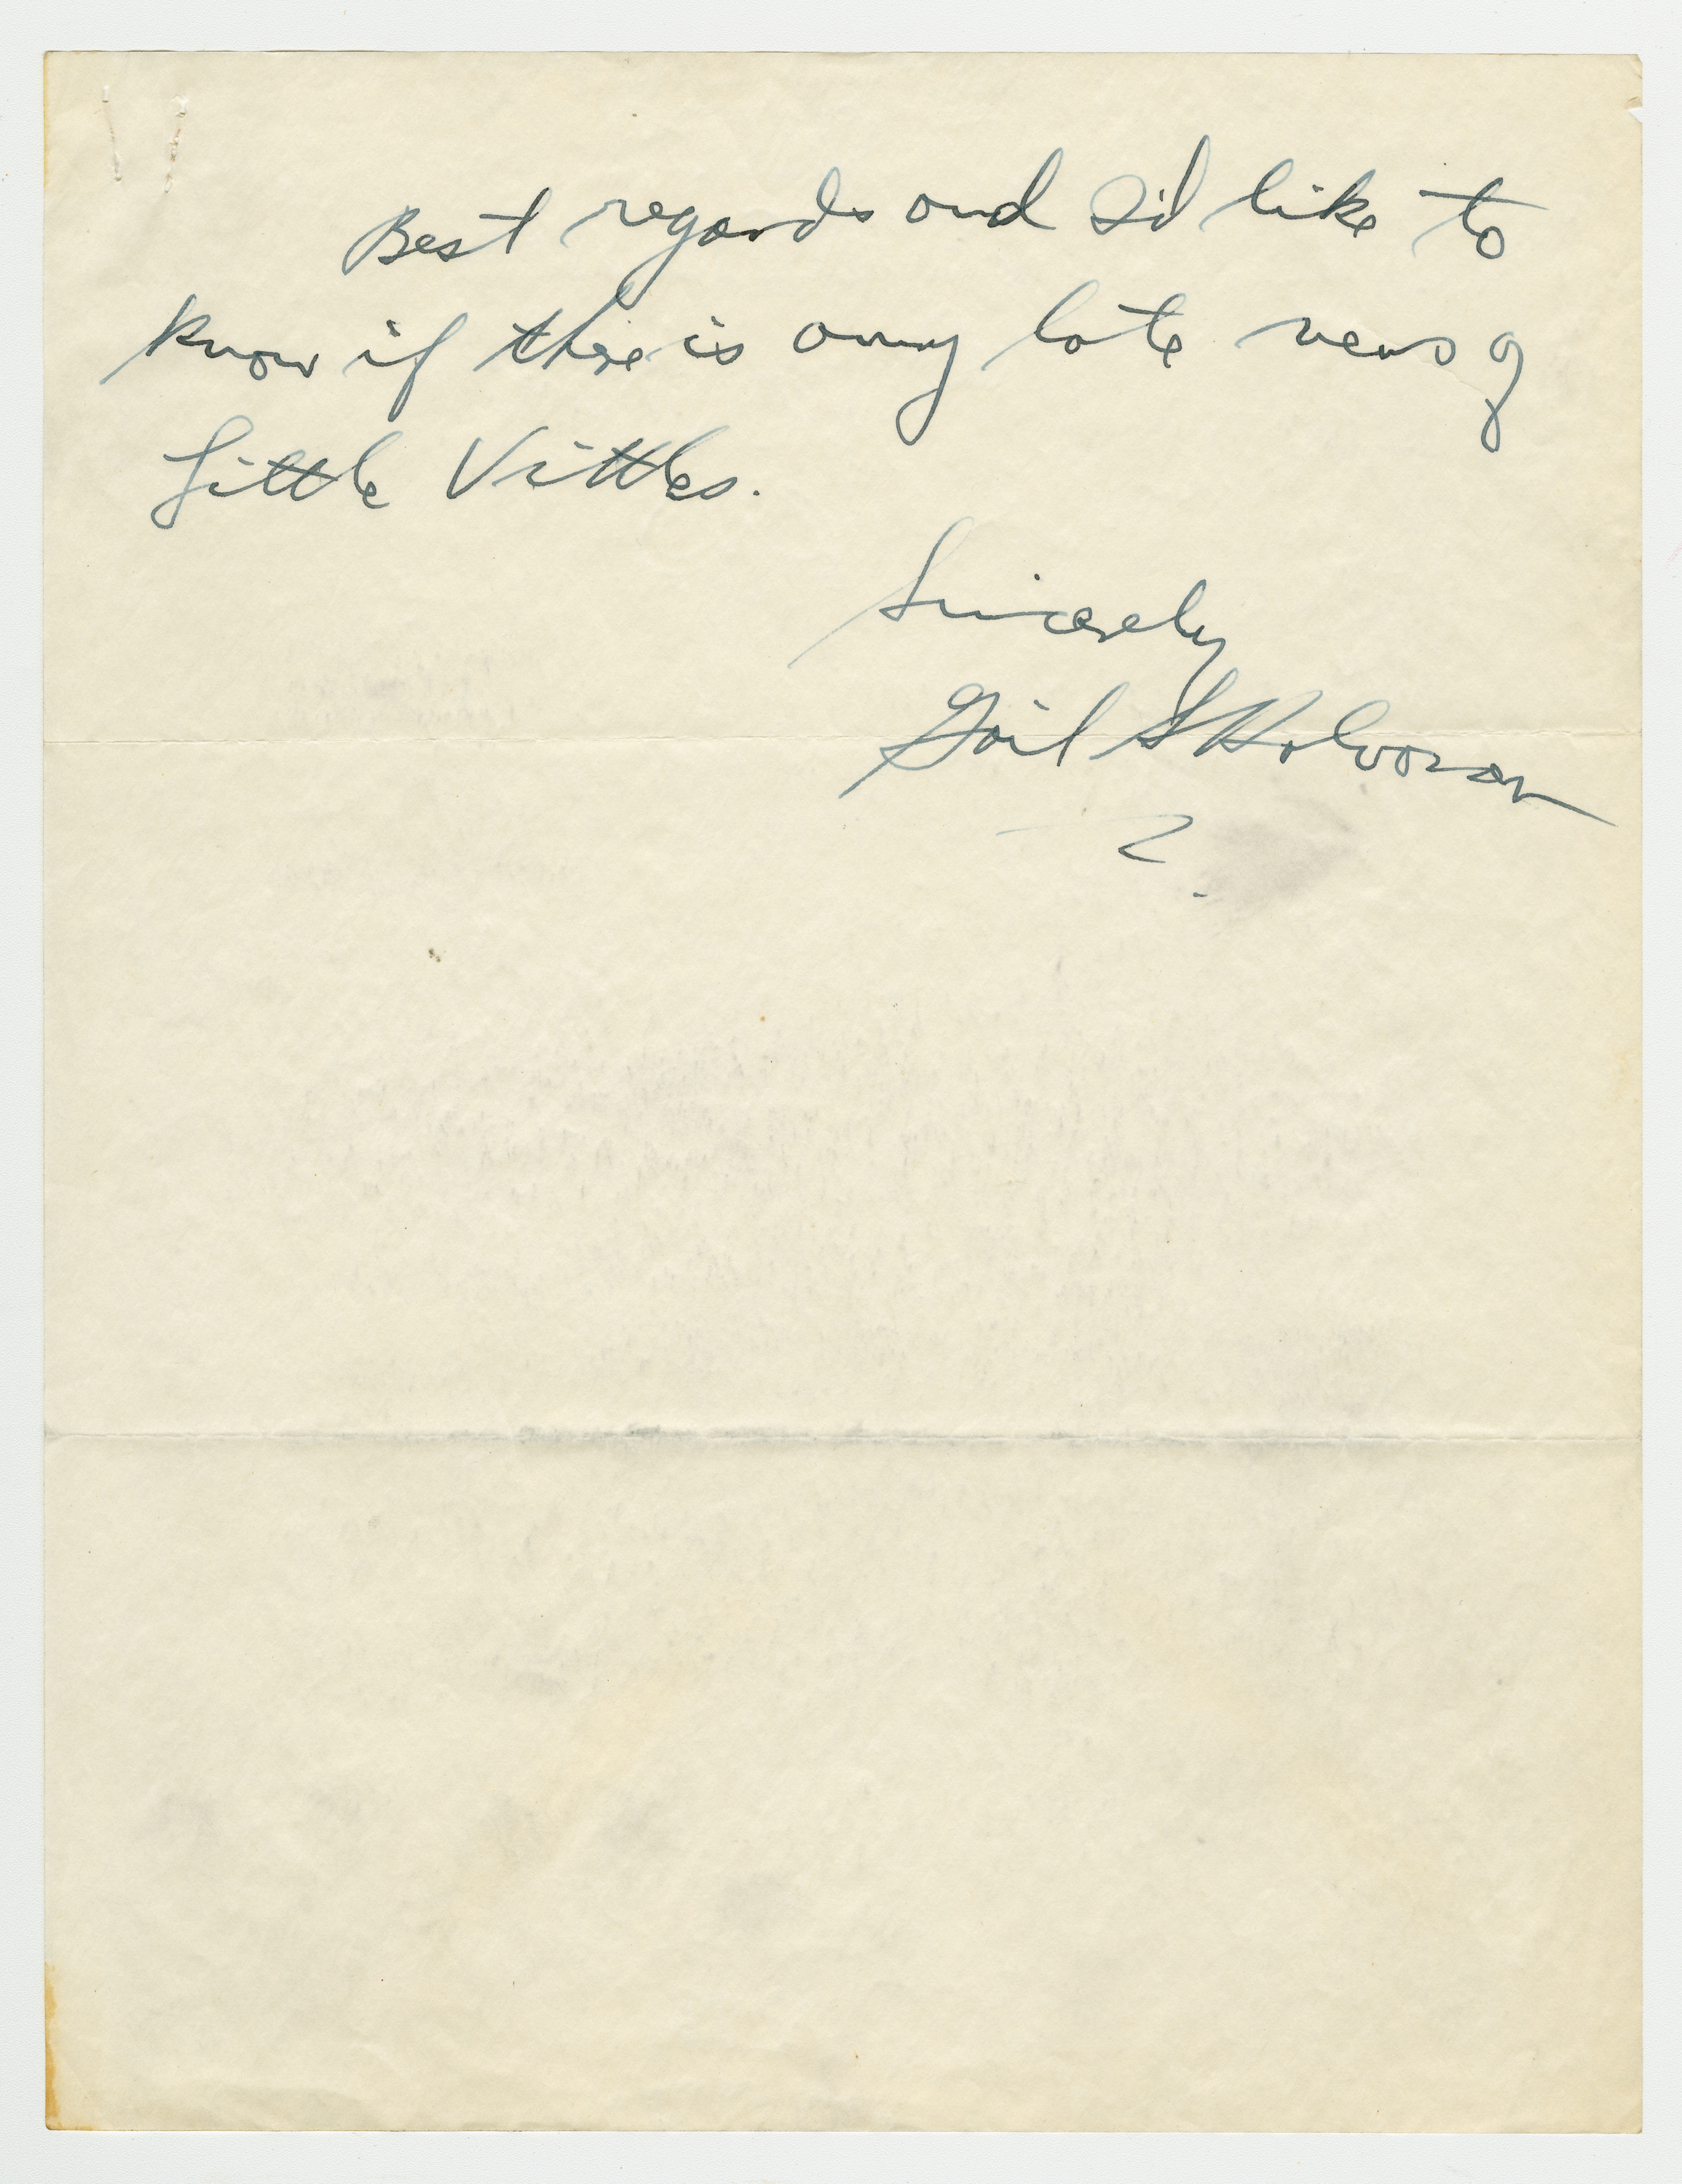 Best regards and I'd like to
know if there is any late news of
Little Vittles.
Sincerely
Gail S Halvorsen